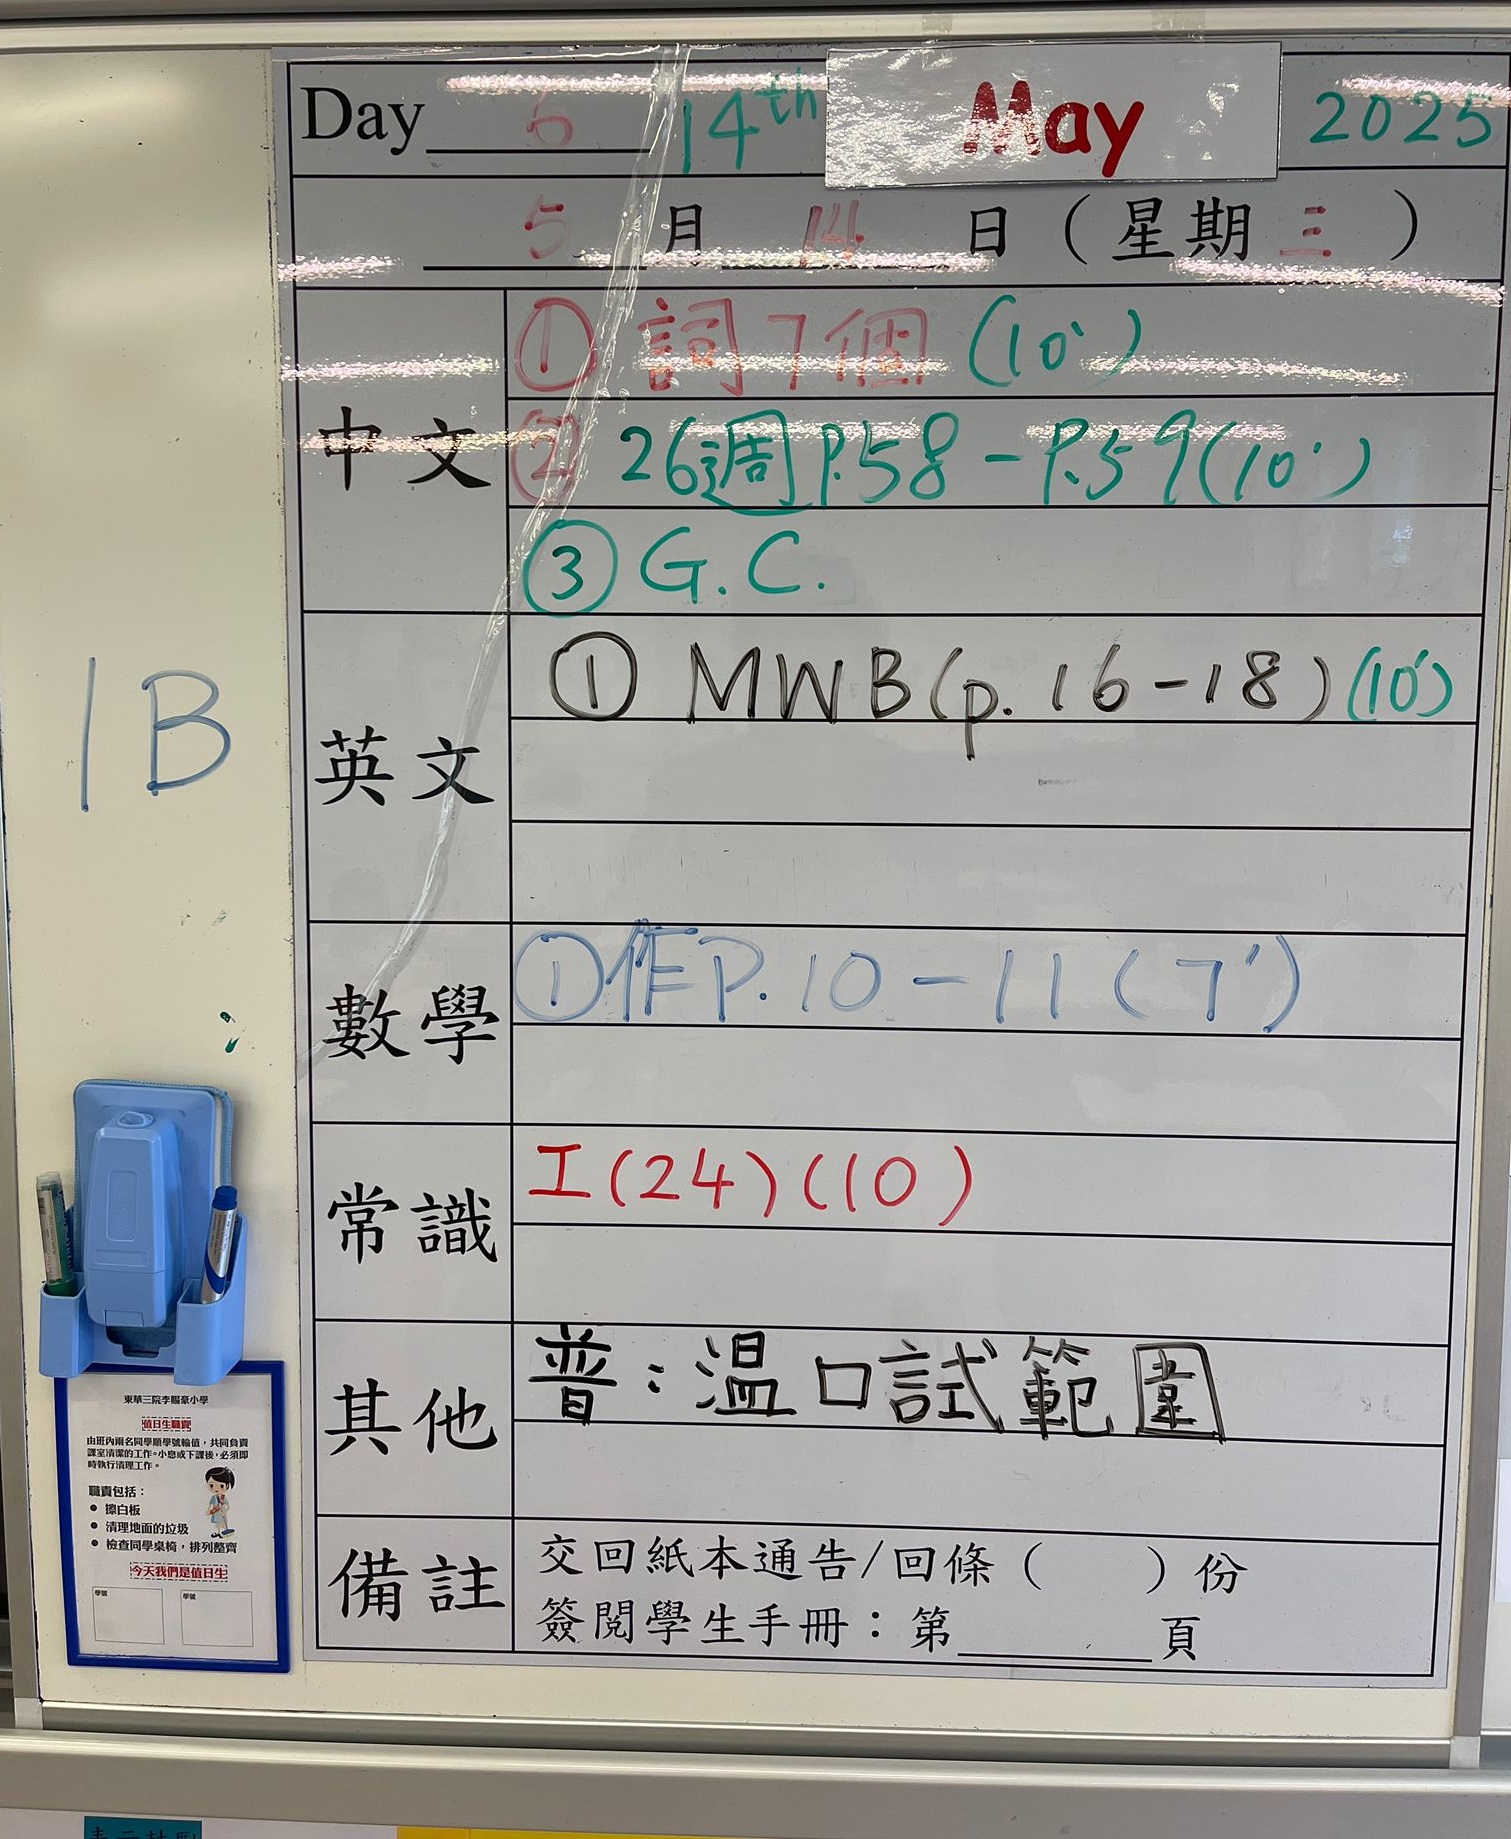 Day 6 14th May 2025
5 月 14 日（星期三）
中文
① 詞7個 (10')
② 26週 P.58 - P.59 (10')
③ G.C.
英文
① MWB (p. 16-18) (10')
數學
① 作 P. 10 - 11 (7')
常識
工(24)(10)
其他
普：溫口試範圍
備註
交回紙本通告/回條（　　）份
簽閱學生手冊：第______頁
1B
東華三院李賜豪小學
值日生職責
由班內兩名同學順學號輪值，共同負責
課室清潔的工作。小息或下課後，必須即
時執行清理工作。
職責包括：
● 擦白板
● 清理地面的垃圾
● 檢查同學桌椅，排列整齊
今天我們是值日生
學號 學號